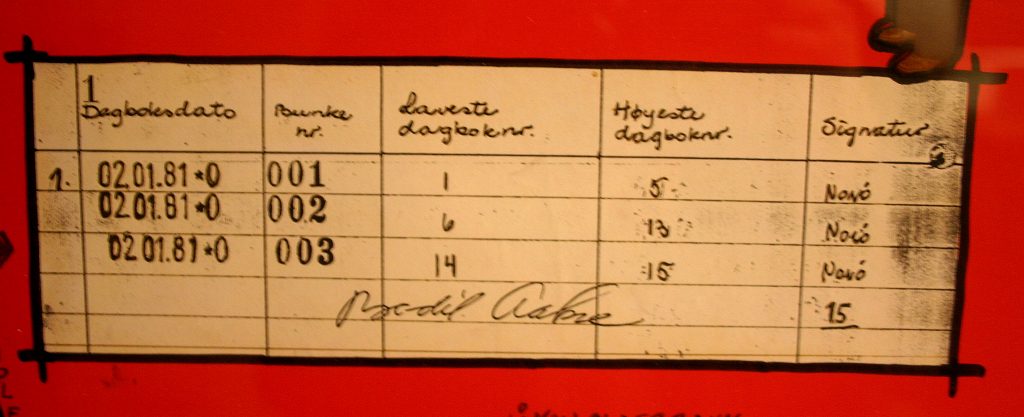 1
Dagboksdato Bunke nr. Laveste dagboknr. Høyeste dagboknr. Signatur
1. 02.01.81*0 001 1 5 Novó
02.01.81*0 002 6 13 Novó
02.01.81*0 003 14 15 Novó
Bodil 15